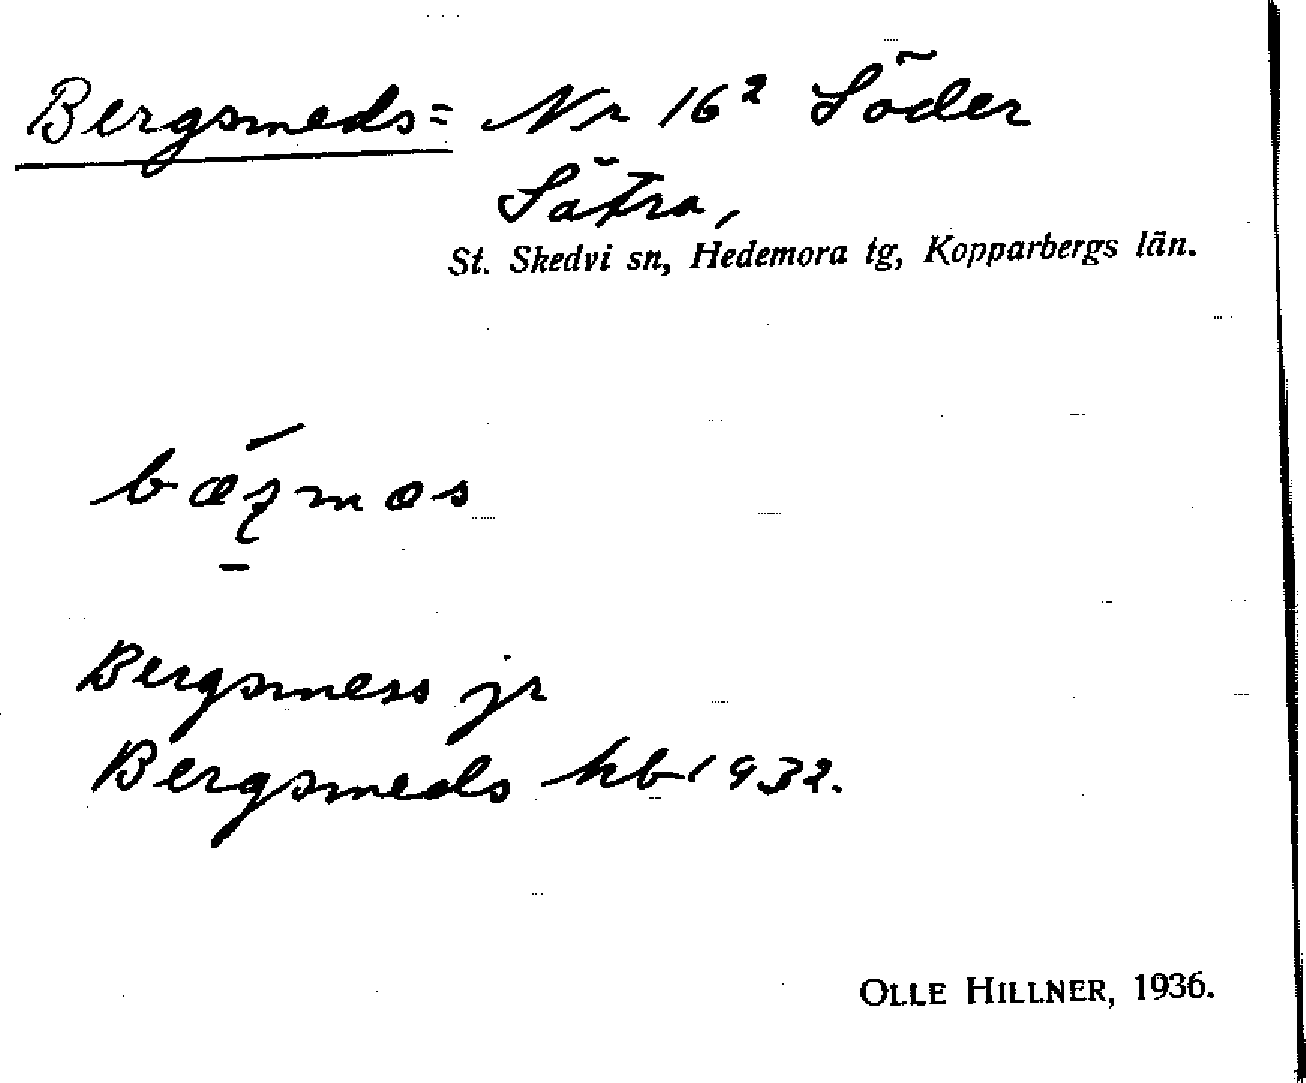 Bergsmeds= Nr 16² Söder
Sätra,
St. Skedvi sn, Hedemora tg, Kopparbergs län.
Bergsmess jr
Bergsmeds kb 1932.
OLLE HILLNER, 1936.